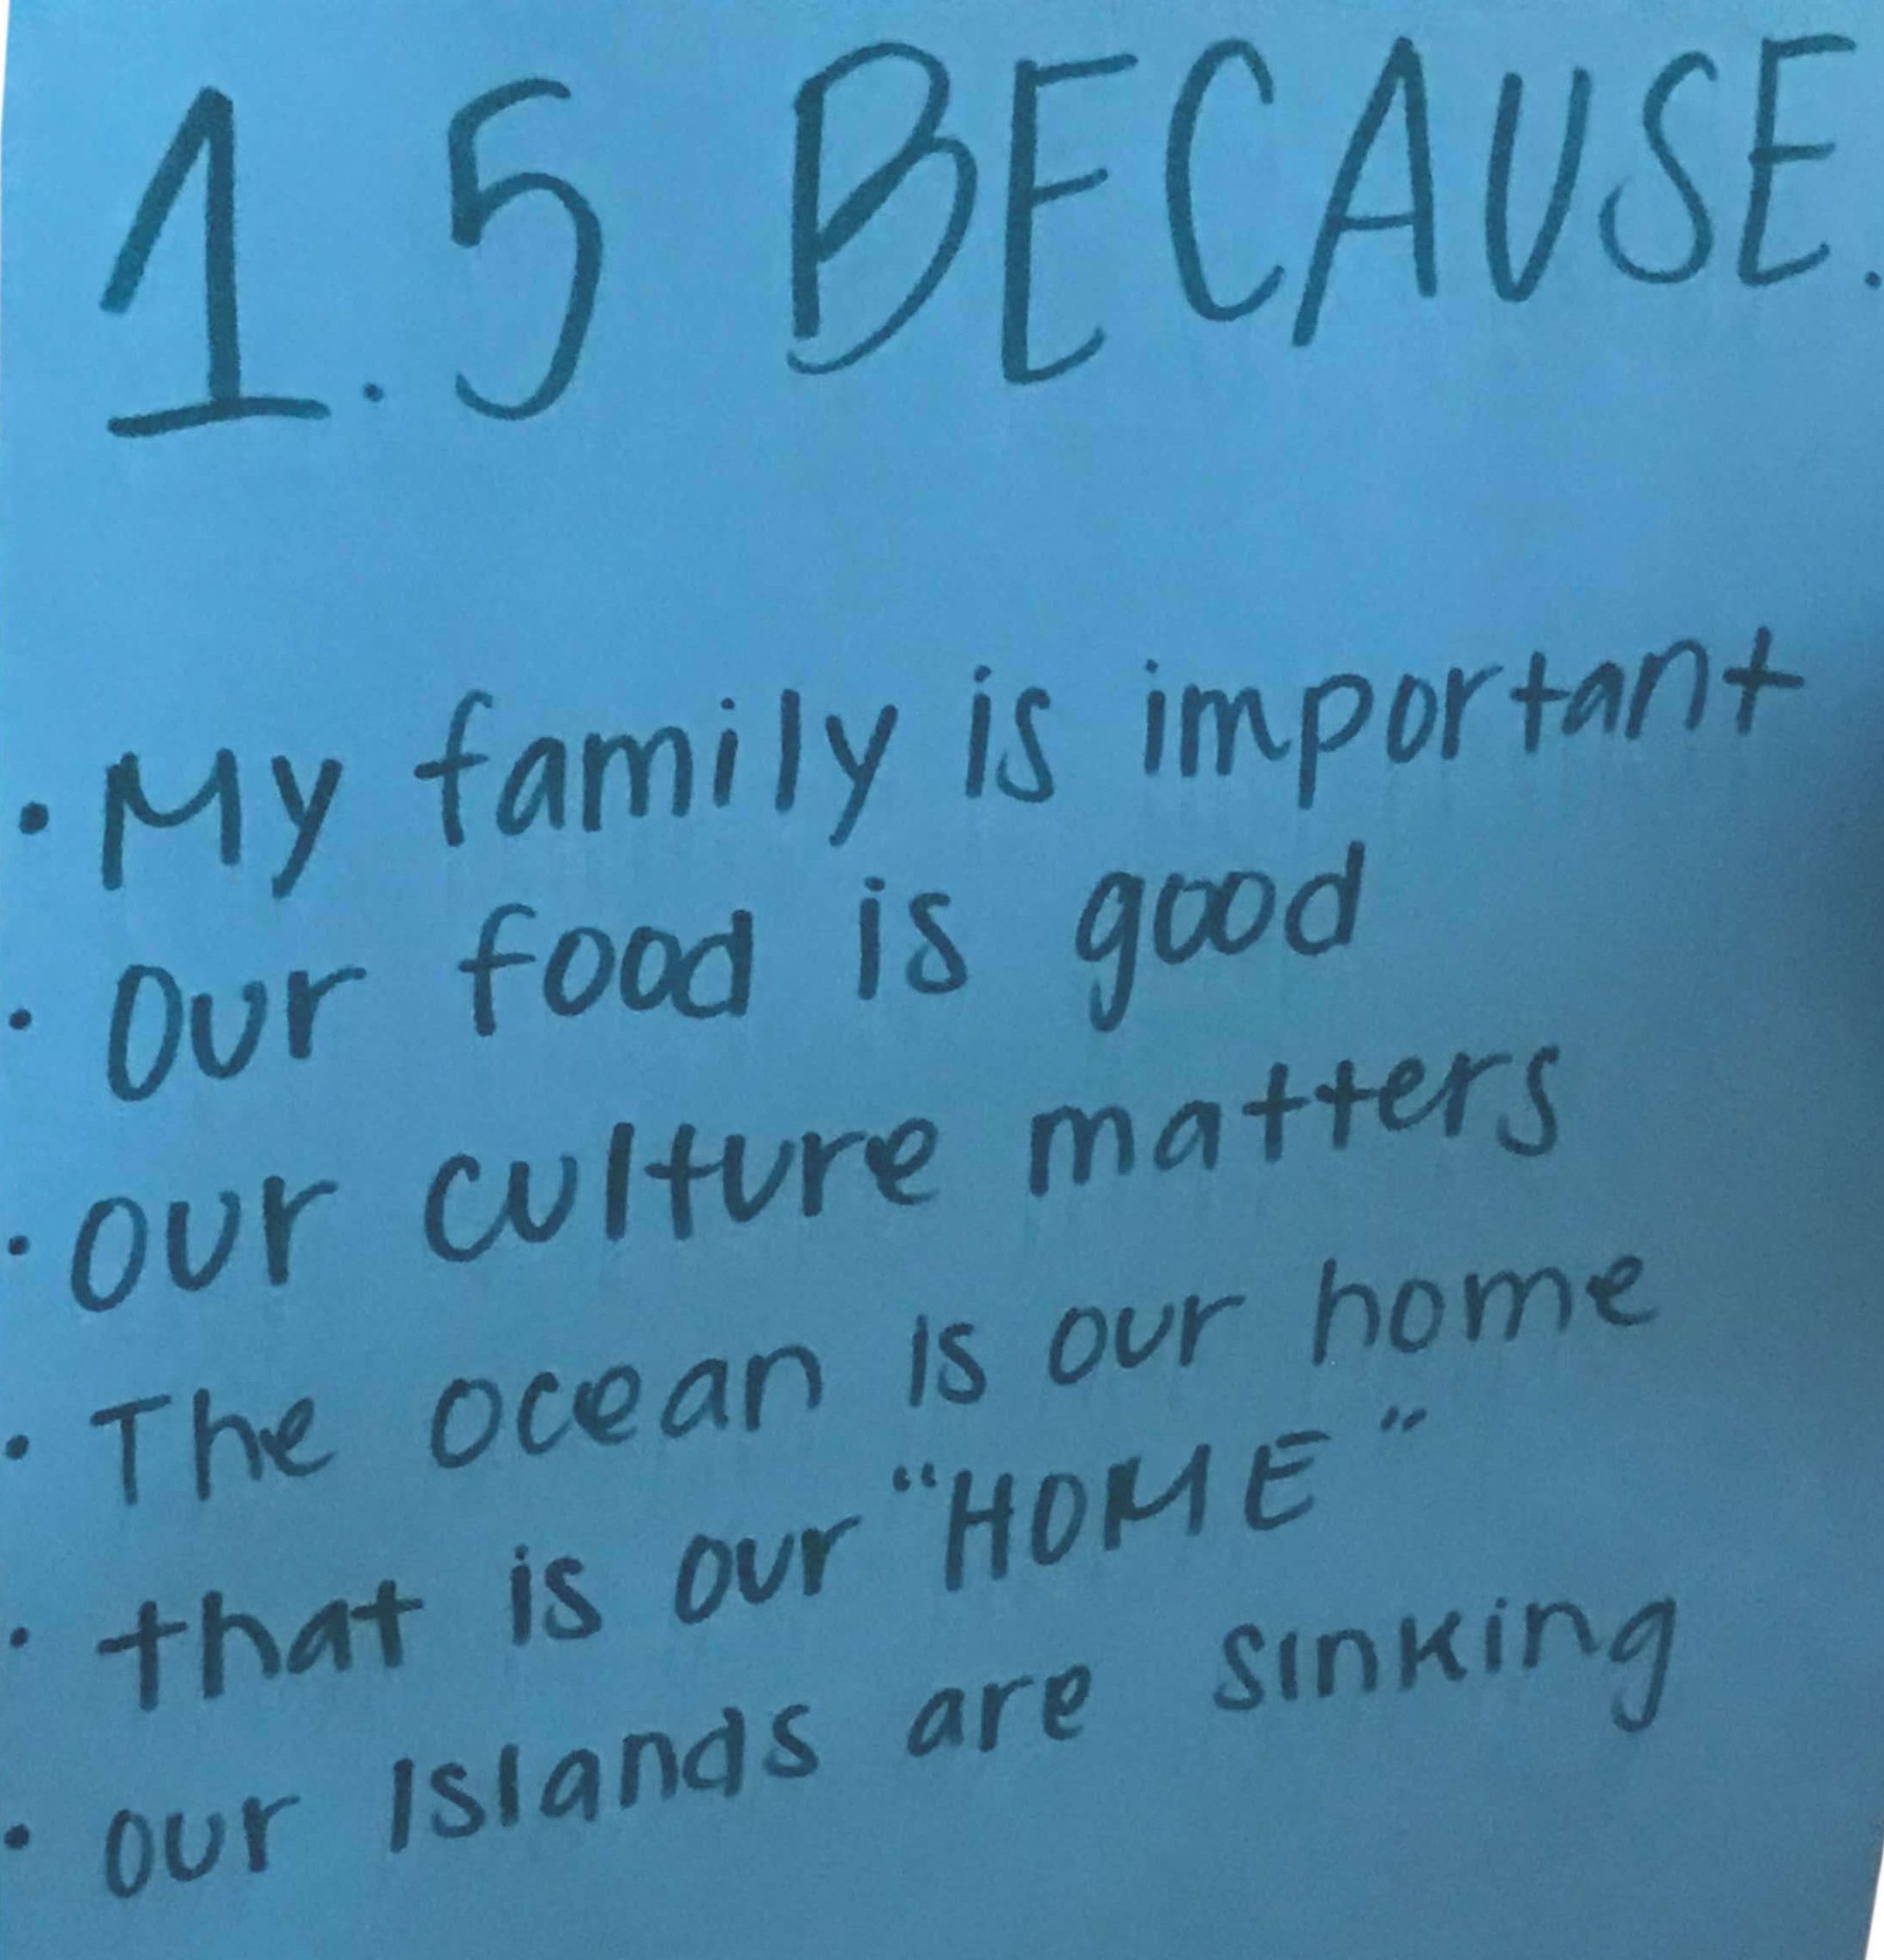 1.5 BECAUSE.
• My family is important
• Our food is good
• our culture matters
• The ocean is our home
• that is our "HOME"
• our Islands are sinking